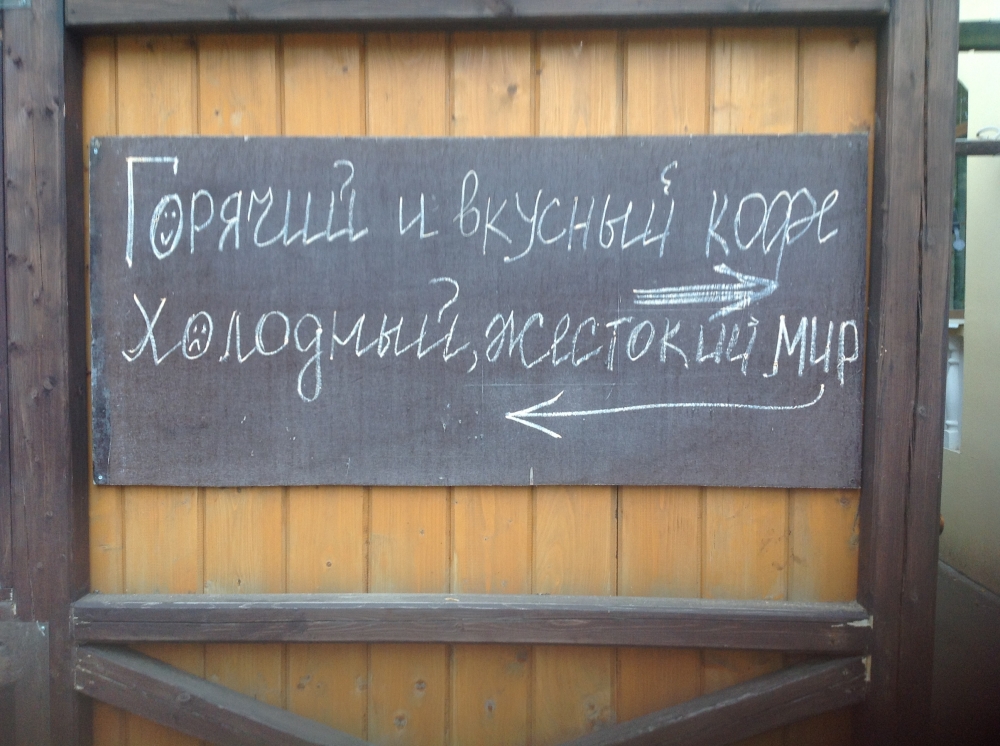 Горячий и вкусный кофе
Холодный, жестокий мир